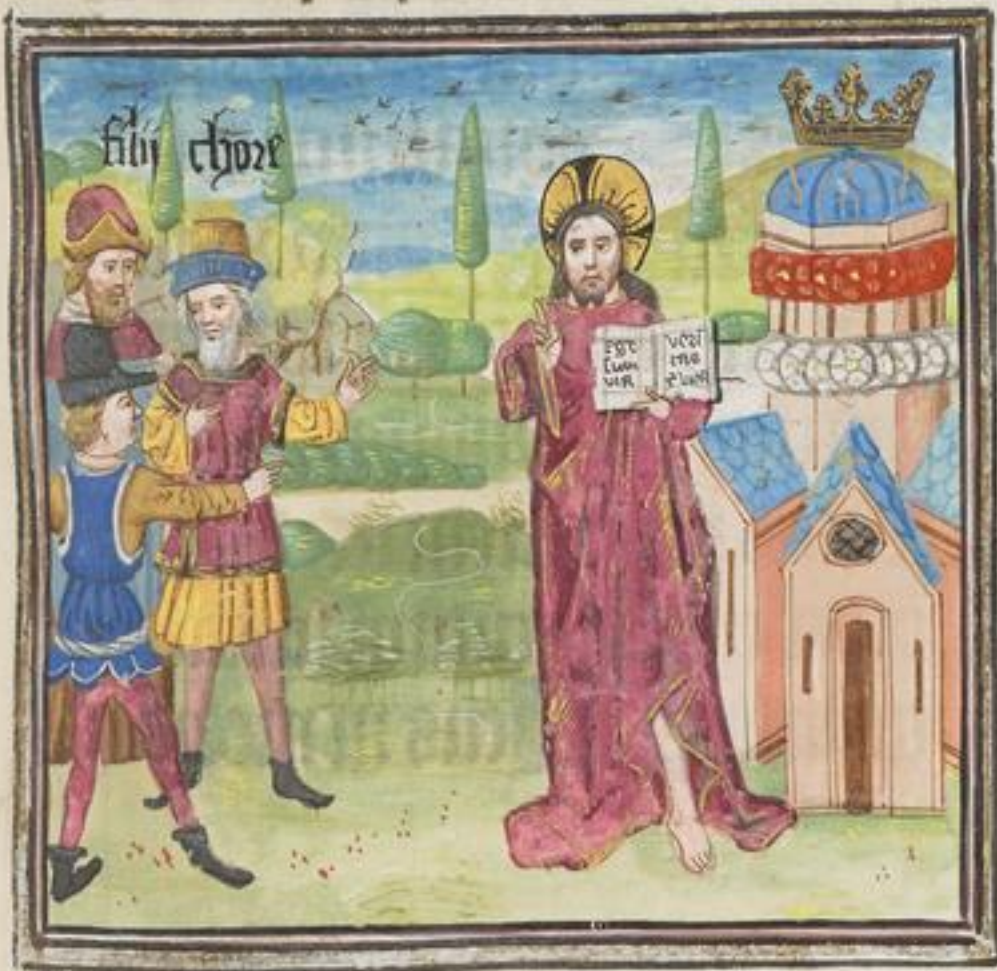 filij chore
EGO
SUM
VIA
VERI
TAS